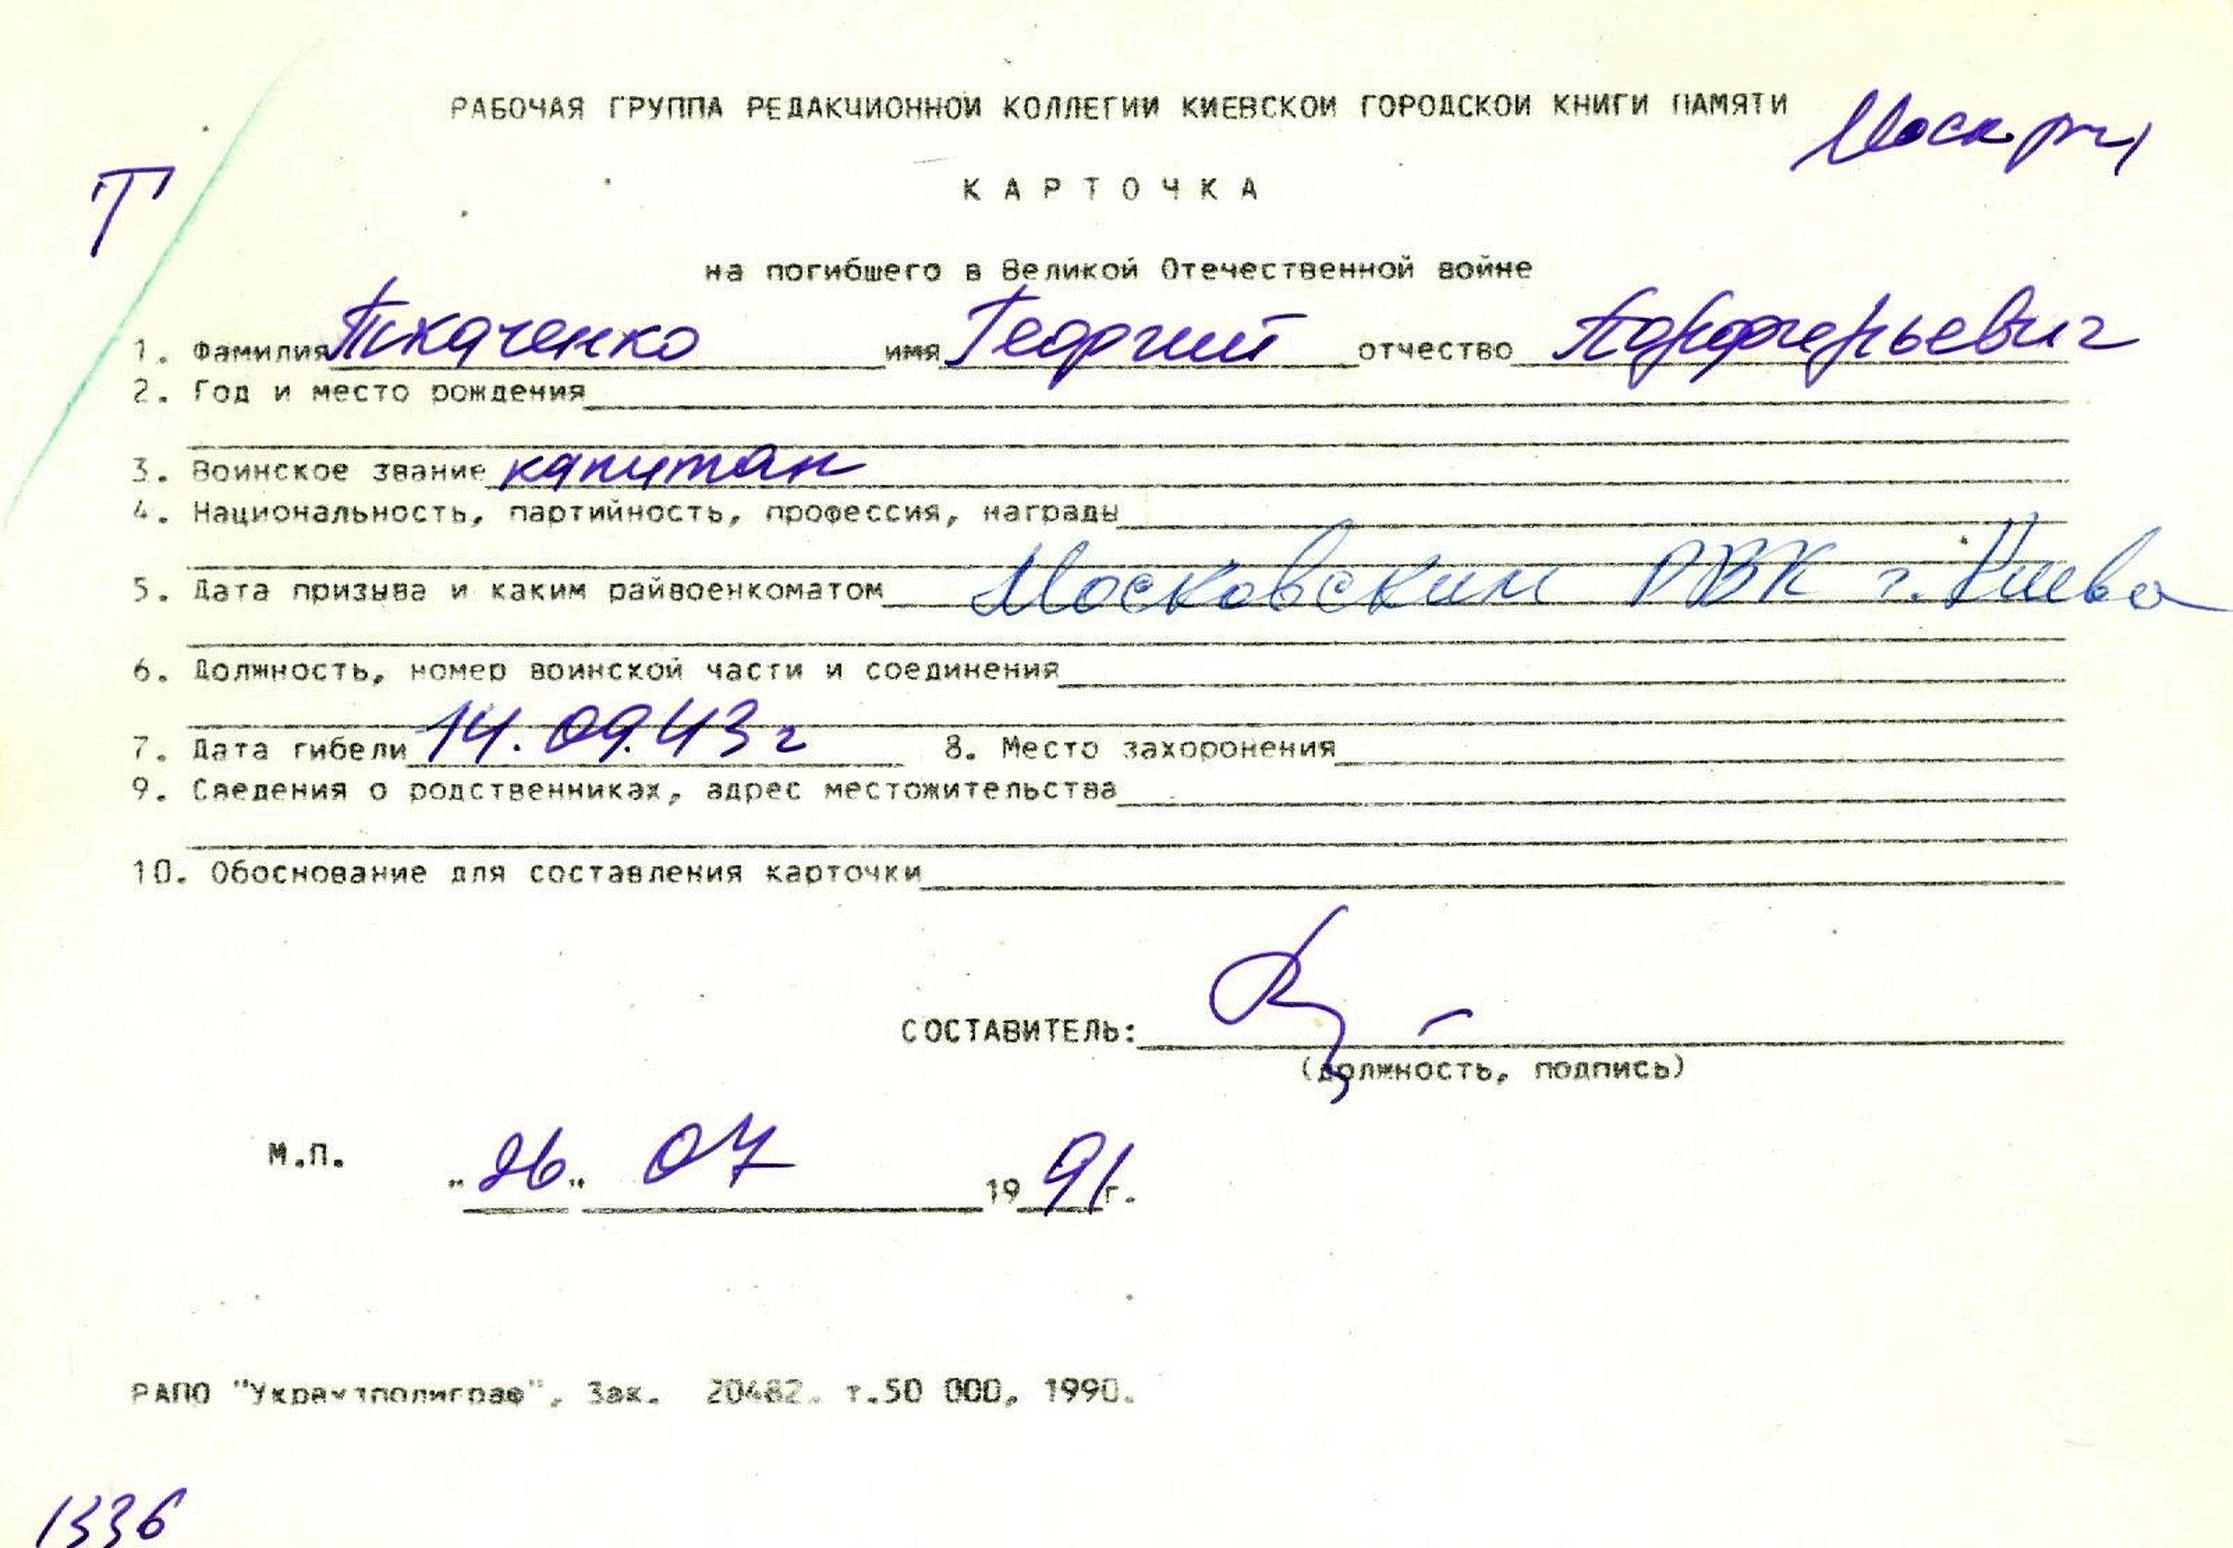 РАБОЧАЯ ГРУППА РЕДАКЦИОННОЙ КОЛЛЕГИИ КИЕВСКОЙ ГОРОДСКОЙ КНИГИ ПАМЯТИ
Т
К А Р Т О Ч К А
на погибшего в Великой Отечественной войне
1. Фамилия Ткаченко имя Георгий отчество
2. Год и место рождения
3. Воинское звание капитан
4. Национальность, партийность, профессия, награды
5. Дата призыва и каким райвоенкоматом Московским РВК г. Киева
6. Должность, номер воинской части и соединения
7. Дата гибели 14.09.43 г 8. Место захоронения
9. Сведения о родственниках, адрес местожительства
10. Обоснование для составления карточки
СОСТАВИТЕЛЬ:
(должность, подпись)
М.П. "26" 07 1991 г.
РАПО "Укрвузполиграф", Зак. 20482. т.50 000, 1990.
1336